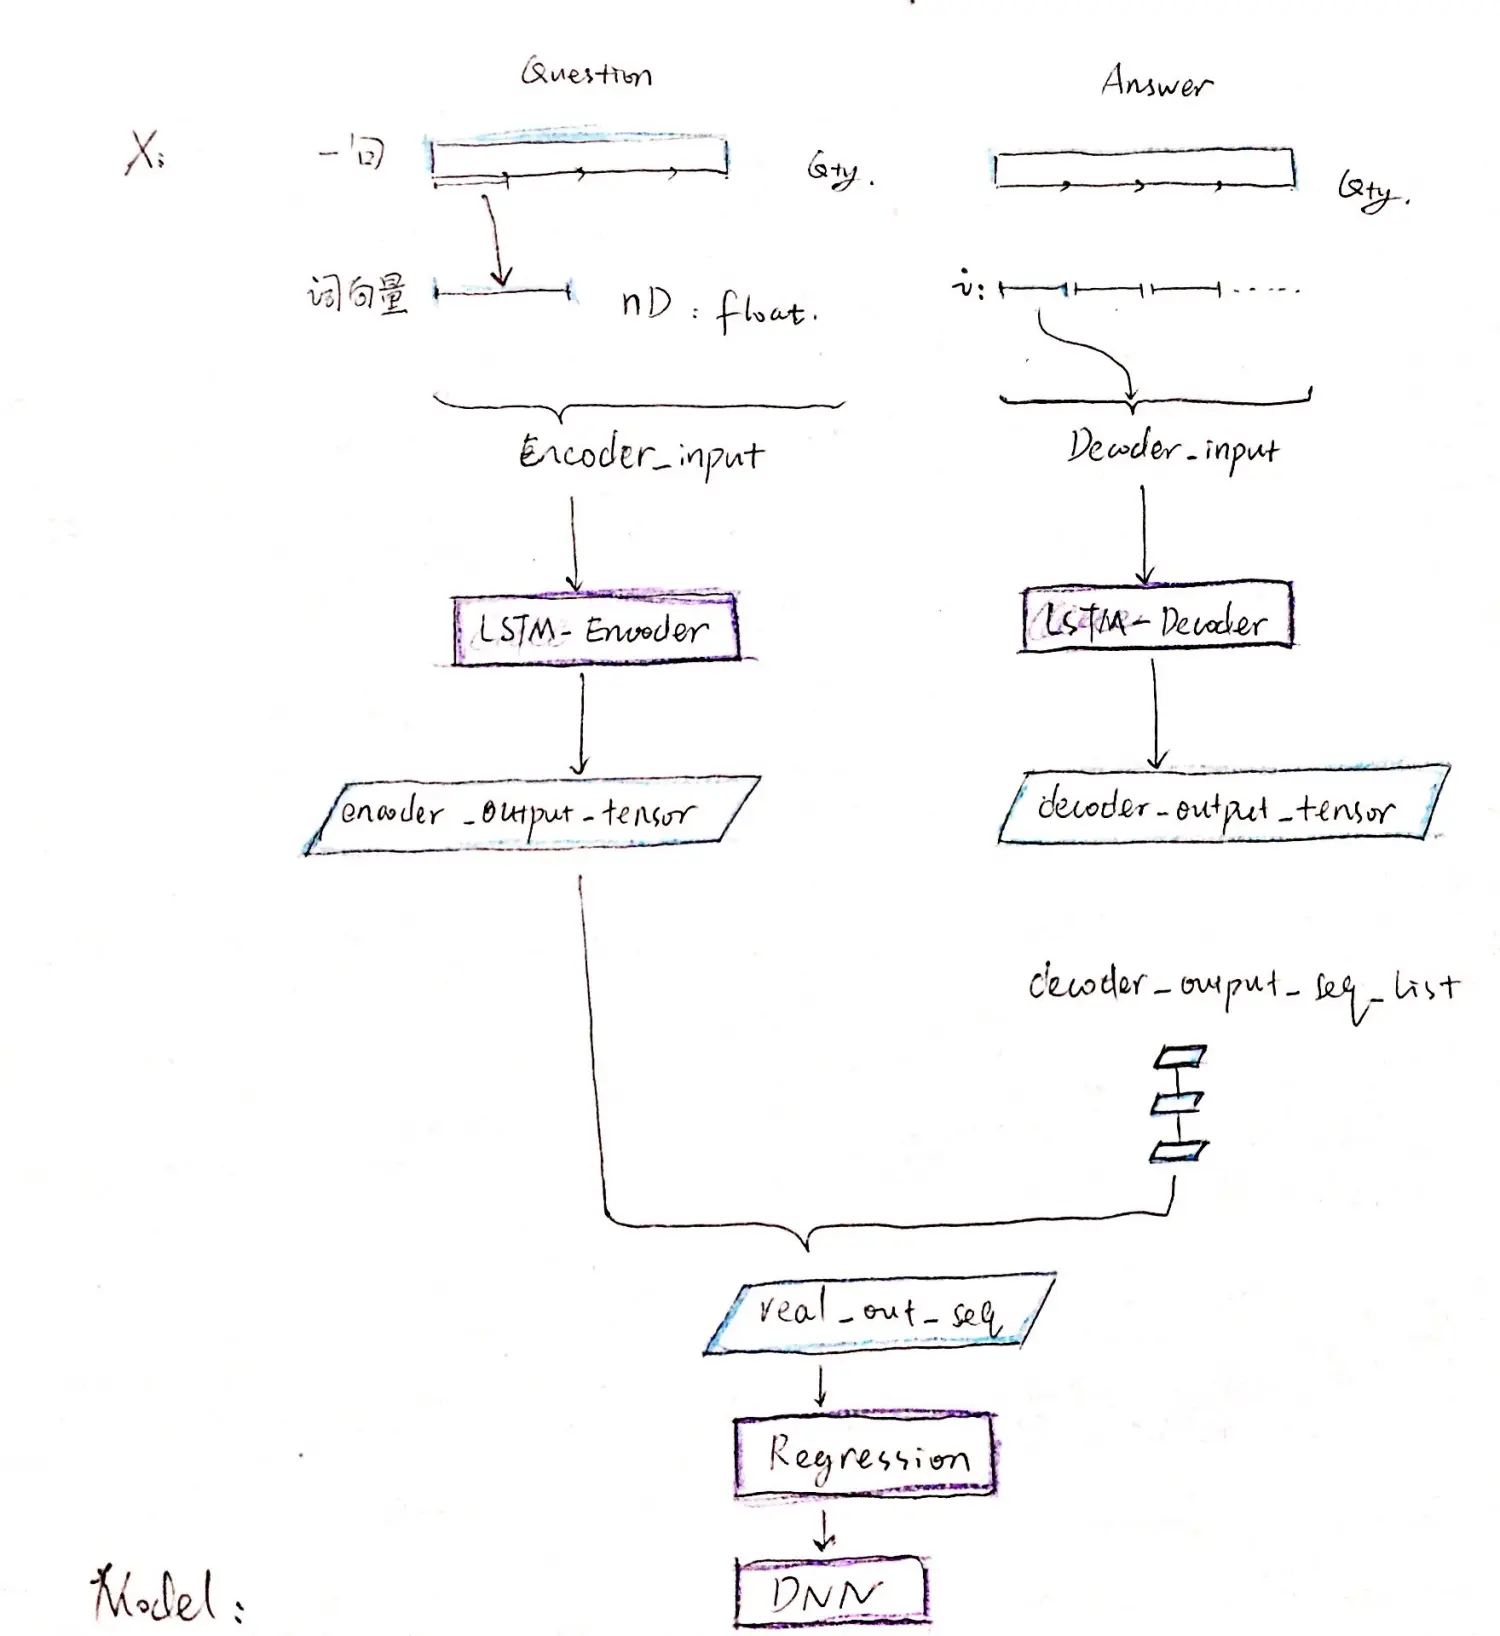 Question
Answer
X:
一句
Qty.
Qty.
词向量
nD : float.
i:
Encoder_input
Decoder_input
LSTM-Encoder
LSTM-Decoder
encoder_output_tensor
decoder_output_tensor
decoder_output_seq_list
real_out_seq
Regression
DNN
Model: